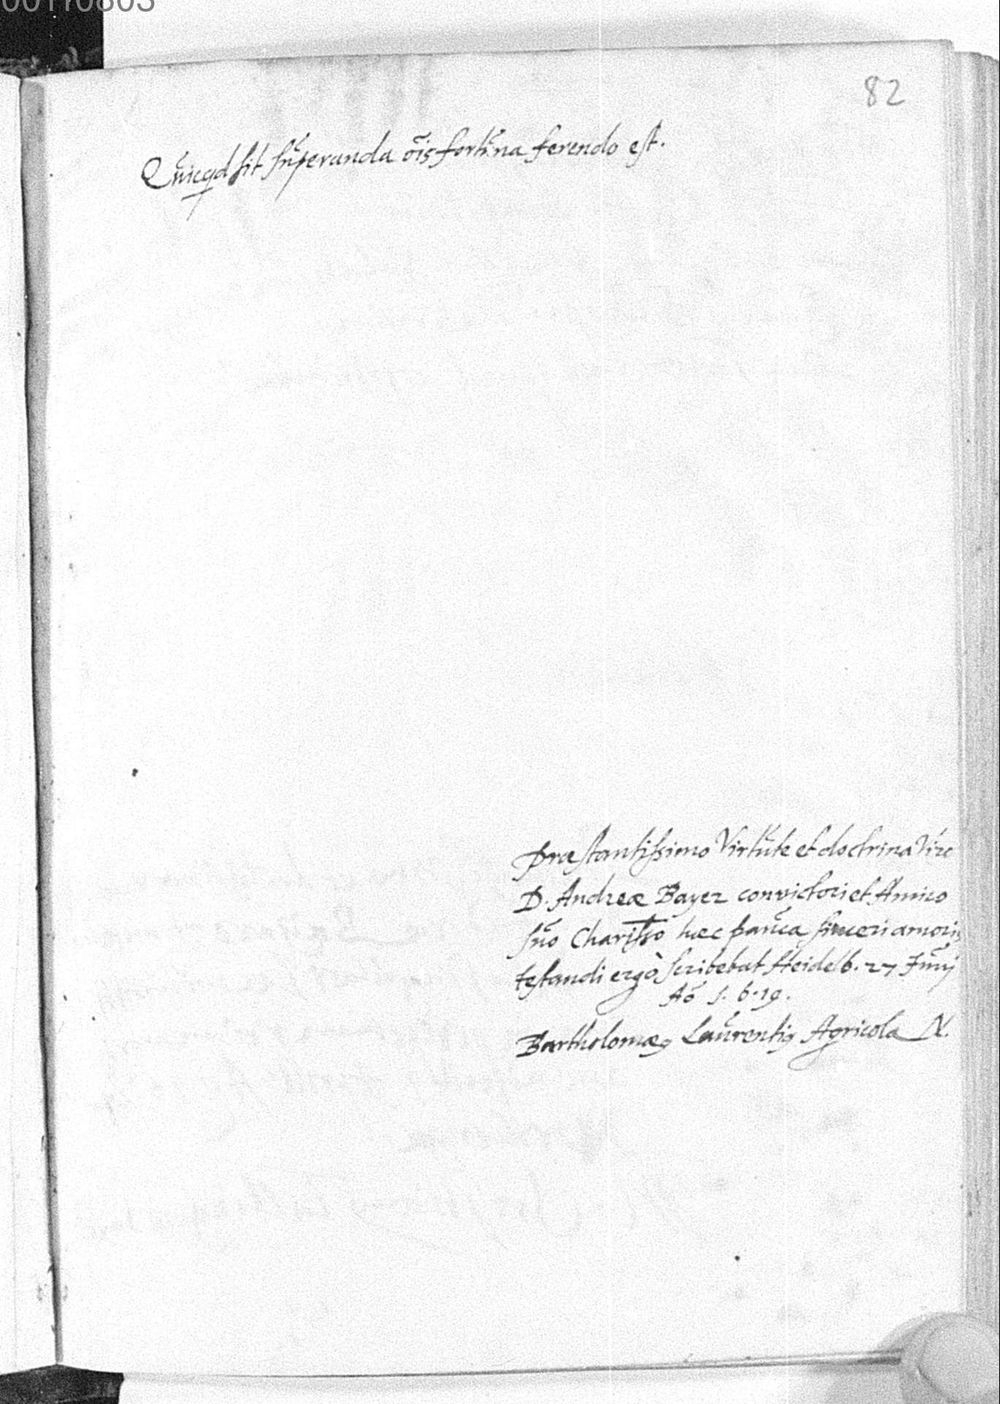 00170803
82
Quicqd sit superanda õis fortuna ferendo est.
Præstantissimo Virtute et doctrina Viro
D. Andreæ Bayer convictori et Amico
suo Charisso hæc pauca sinceri amoris
testandi ergò scribebat Heidelb. 27 Junij
Aõ 1.6.19.
Bartholomæus Laurentius Agricola N.